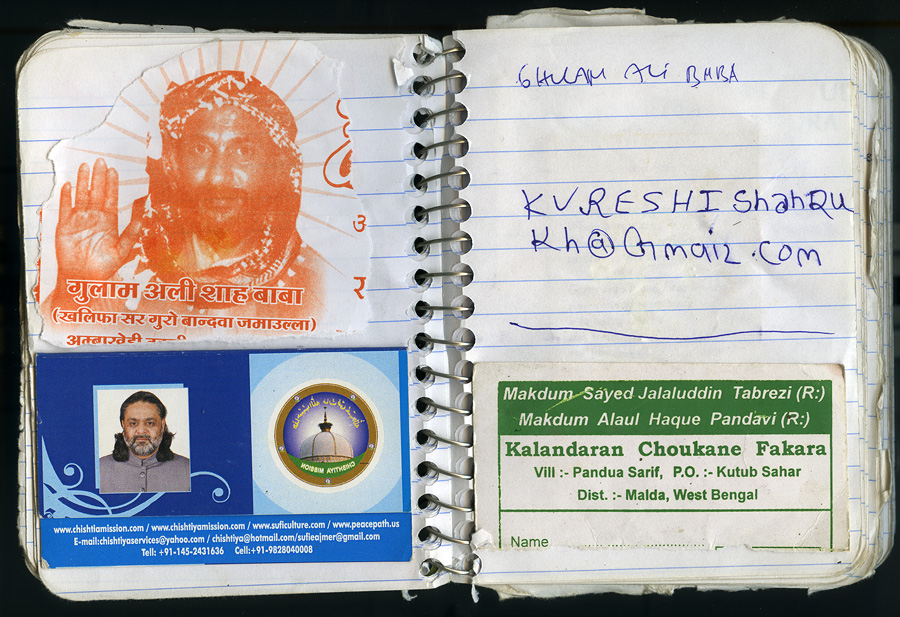 गुलाम अली शाह बाबा
(खलिफा सर गुरो बान्दवा जमाउल्ला)
CHISHTIYA MISSION
www.chishtiamission.com / www.chishtiyamission.com / www.suficulture.com / www.peacepath.us
E-mail:chishtiyaservices@yahoo.com / chishtiya@hotmail.com/sufieajmer@gmail.com
Tell: +91-145-2431636 Cell:+91-9828040008
GHULAM ALI BABA
KURESHIShahRu
Kh@Gmail.com
Makdum Sayed Jalaluddin Tabrezi (R:)
Makdum Alaul Haque Pandavi (R:)
Kalandaran Choukane Fakara
Vill :- Pandua Sarif, P.O. :- Kutub Sahar
Dist. :- Malda, West Bengal
Name